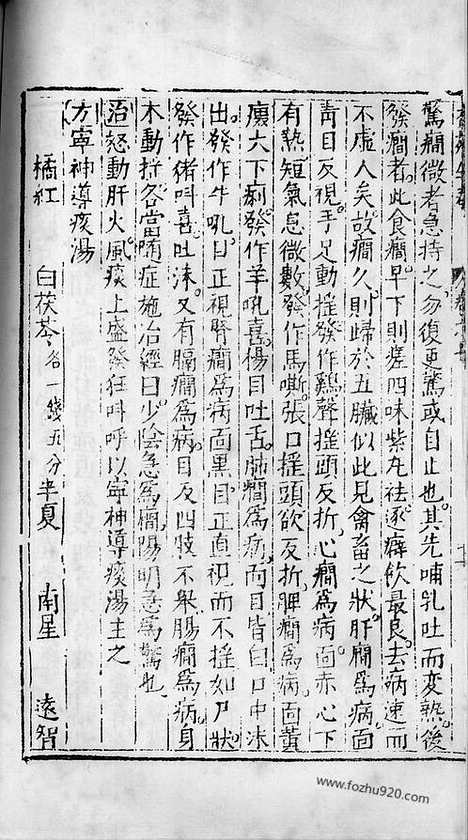 驚癎微者急持之勿復更驚或自止也其先哺乳吐而變熱後
發癎者此食癎早下則瘥四味紫丸袪逐癖飲最良去病速而
不虛人矣故癎久則歸於五臟似此見禽畜之狀肝癎為病面
青目反視手足動摇發作鷄聲摇頭反折心癎為病面赤心下
有熱短氣息微數發作馬嘶張口摇頭欲反折脾癎為病面黃
腹大下痢發作羊吼喜揚目吐舌肺癎為病面目皆白口中沫
出發作牛吼目正視腎癎為病面黑目正直視而不摇如尸狀
發作猪呌喜吐沫又有膈癎為病目反四肢不舉腸癎為病身
不動摇各當隨症施治經曰少陰急為癎陽明急為驚也
治怒動肝火風痰上盛發狂呌呼以寧神導痰湯主之
方寧神導痰湯
橘紅 白茯苓各一錢五分 半夏 南星 遠智
www.fozhu920.com